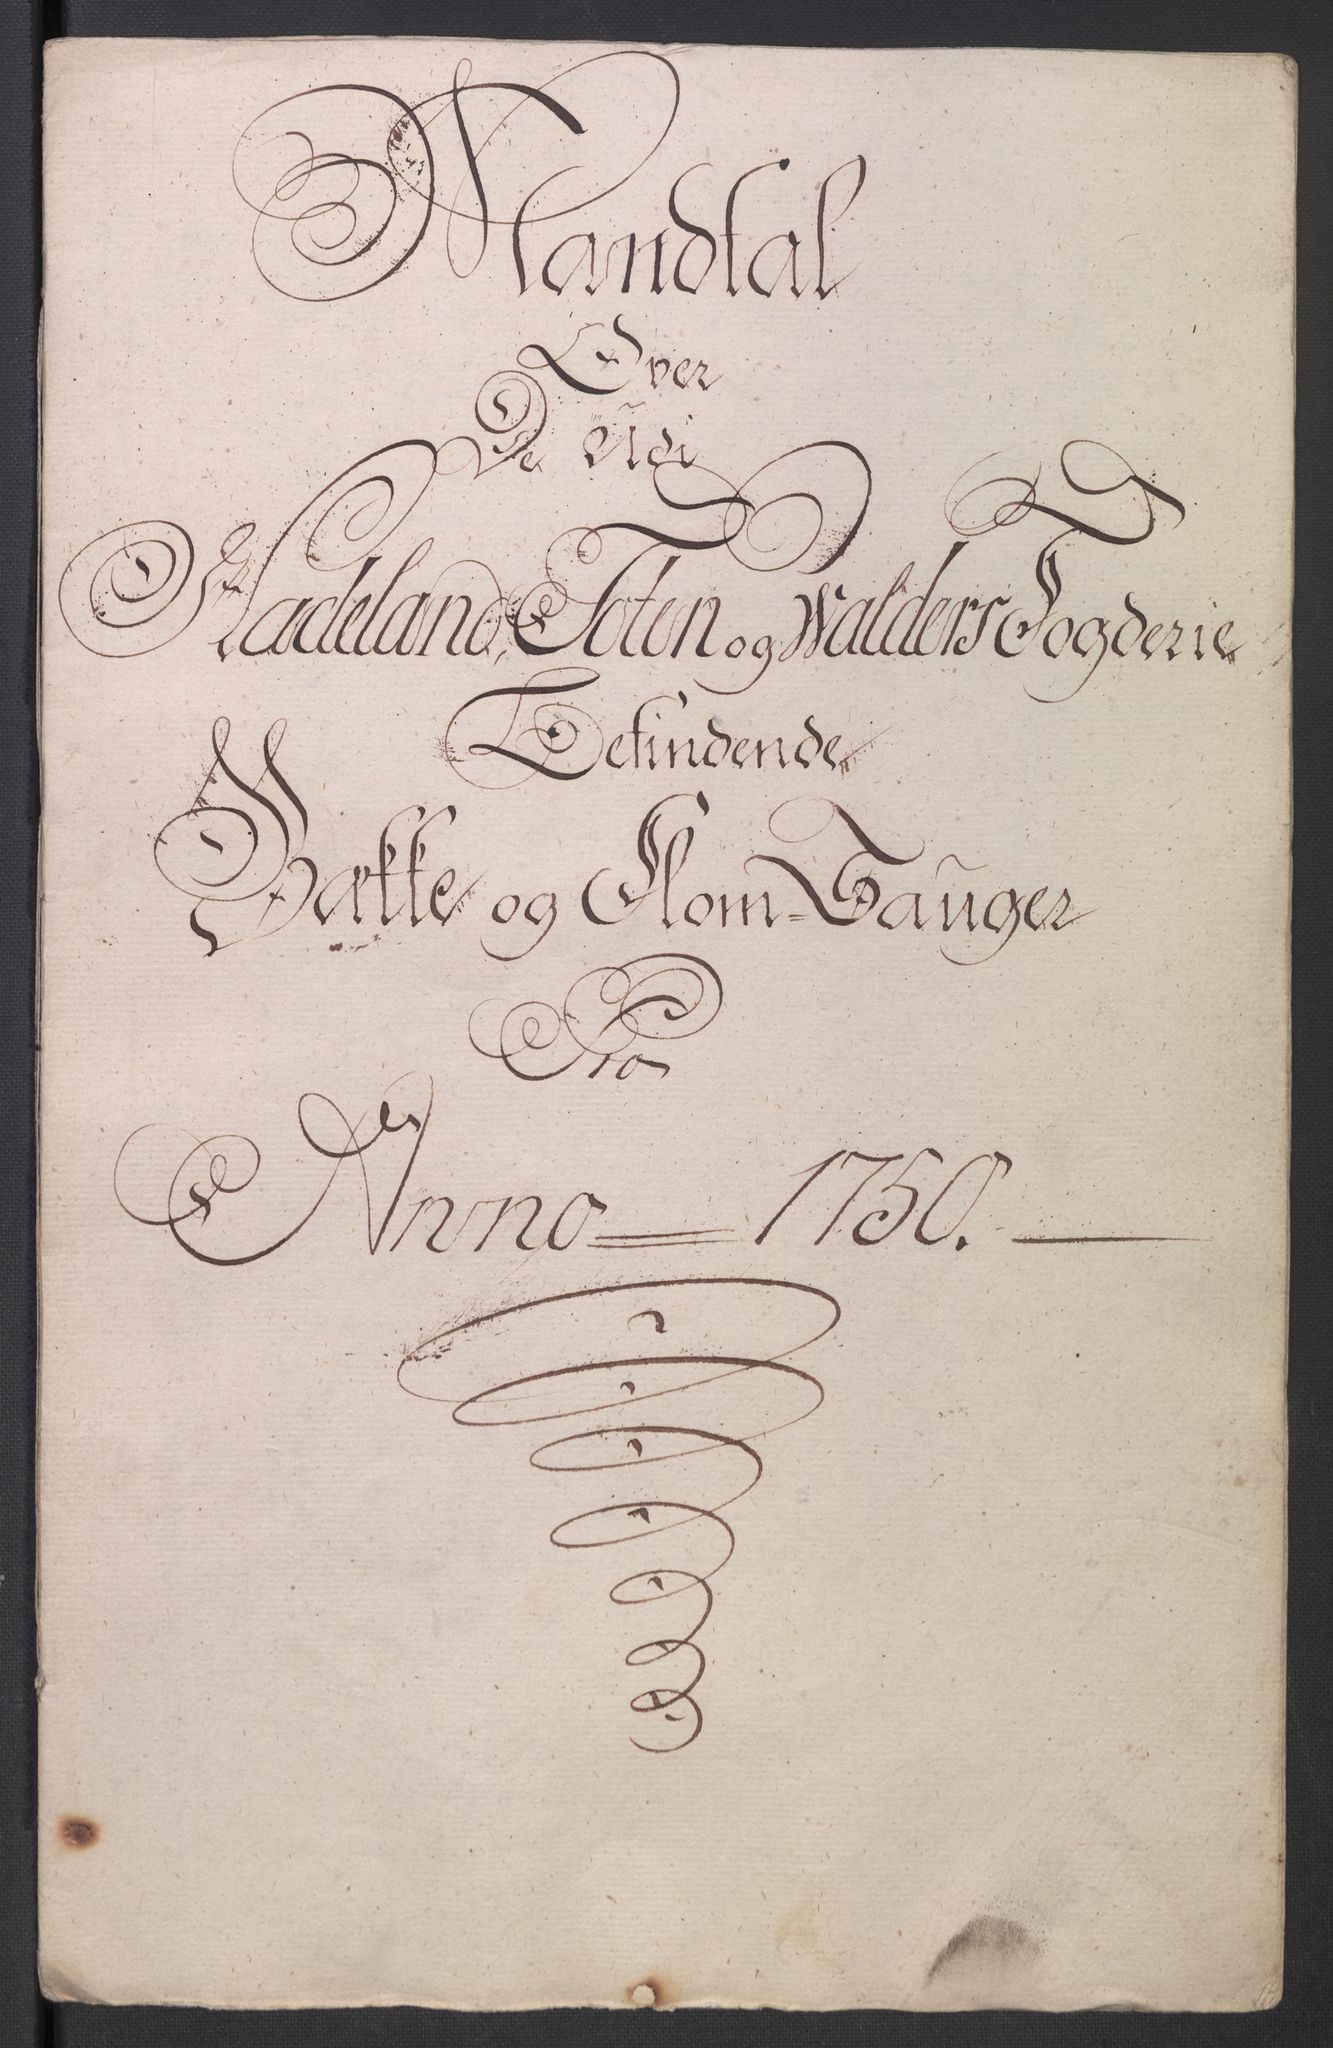 Mandtal
Over
De Udi
Hadeland, Toten og Walders Fogderie
Befindende
Bække og Flom-Sauger
Pro
Anno 1750.